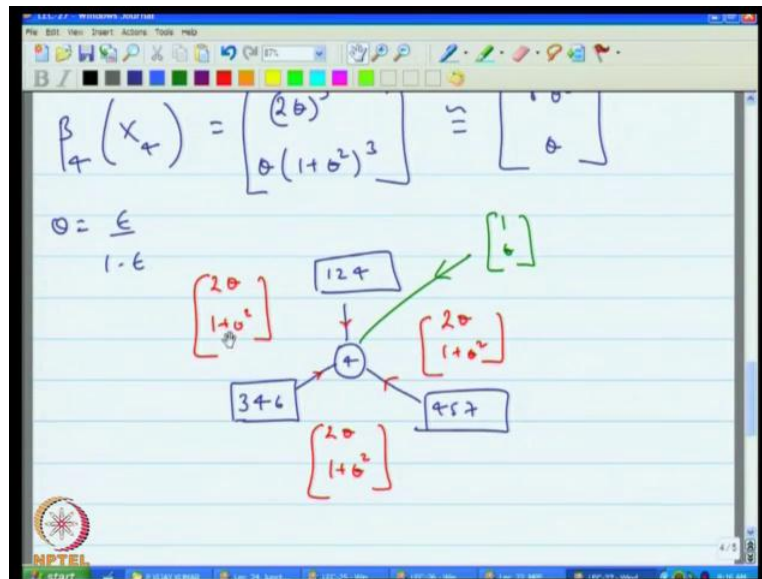 LEC-27 - Windows Journal
File Edit View Insert Actions Tools Help
87%
B I
β₄ (X₄) = [ (2θ)³ ; θ(1+θ²)³ ] ≅ [ θ ]
θ = ε / 1-ε
124
[ 1 ; θ ]
[ 2θ ; 1+θ² ]
[ 2θ ; 1+θ² ]
4
346
457
[ 2θ ; 1+θ² ]
4/5
NPTEL
start